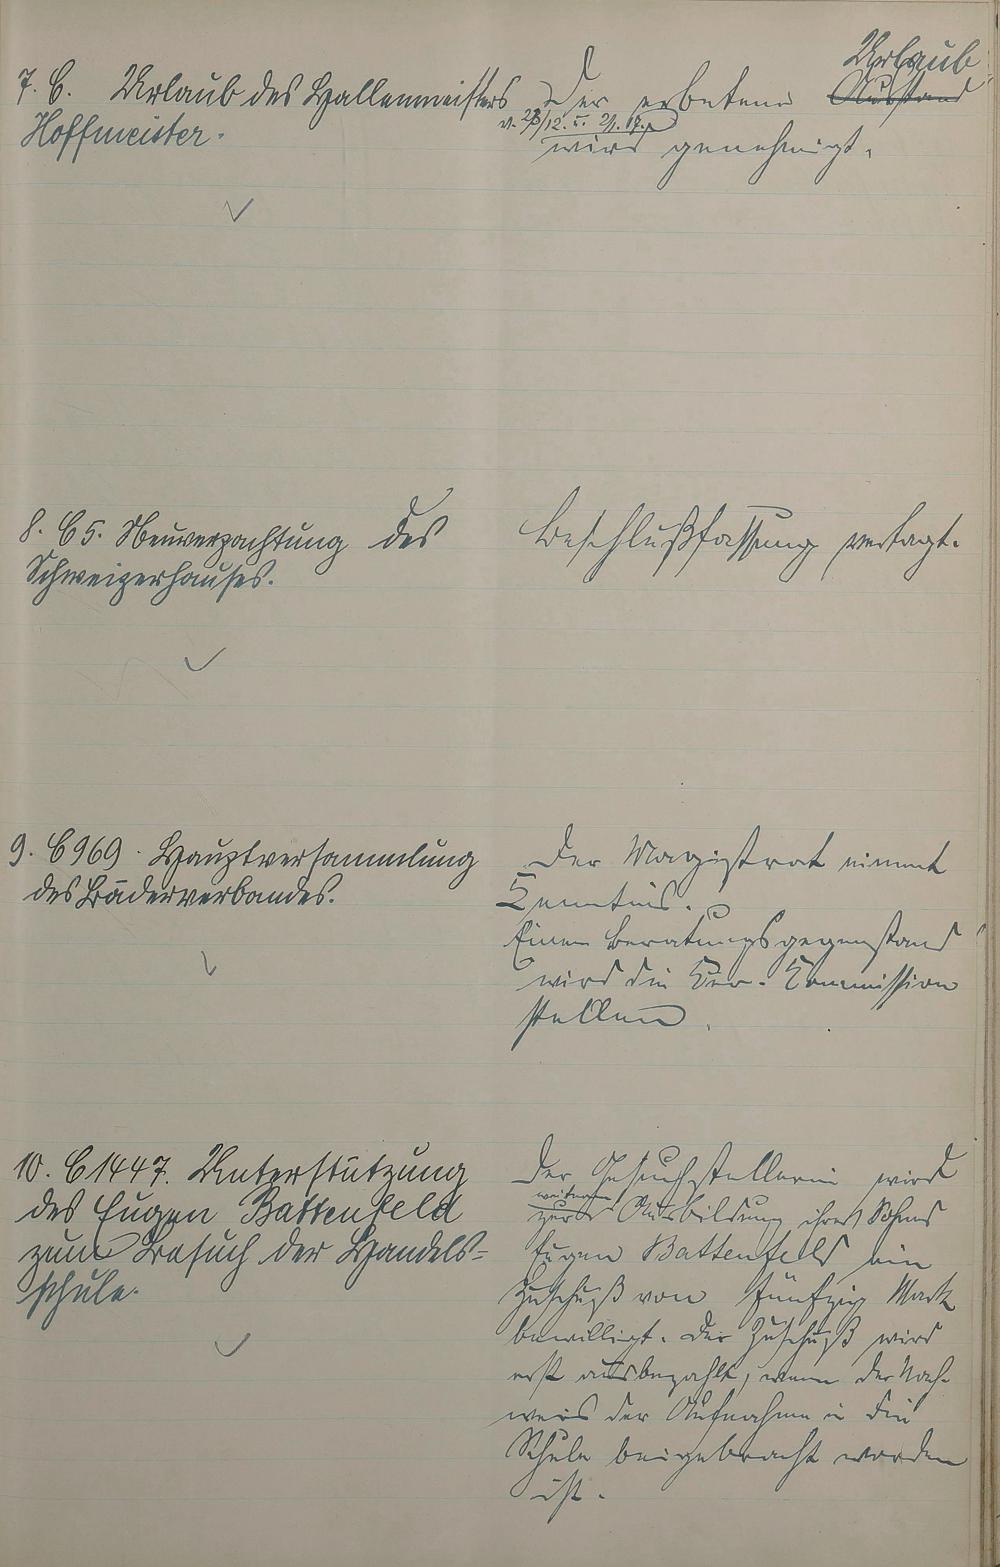 7. C. Urlaub des Hallenmeisters
Hoffmeister.
Urlaub
Der erbetene Ausstand
v. 23/12. u. 2/1. 17.
wird genehmigt.
8. C 5. Neuverpachtung des
Schweizerhauses.
Beschlußfassung vertagt.
9. C 969. Hauptversammlung
des Bäderverbandes.
Der Magistrat nimmt
Kenntnis.
Einen Beratungsgegenstand
wird die Kur-Commission
stellen.
10. C 1447. Unterstützung
des Eugen Battenfeld
zum Besuch der Handels-
schule.
Der Gesuchstellerin wird
weiteren
zur Ausbildung ihres Sohnes
Eugen Battenfeld ein
Zuschuß von fünfzig Mark
bewilligt. Der Zuschuß wird
erst ausbezahlt, wenn der Nach-
weis der Aufnahme in die
Schule beigebracht worden
ist.